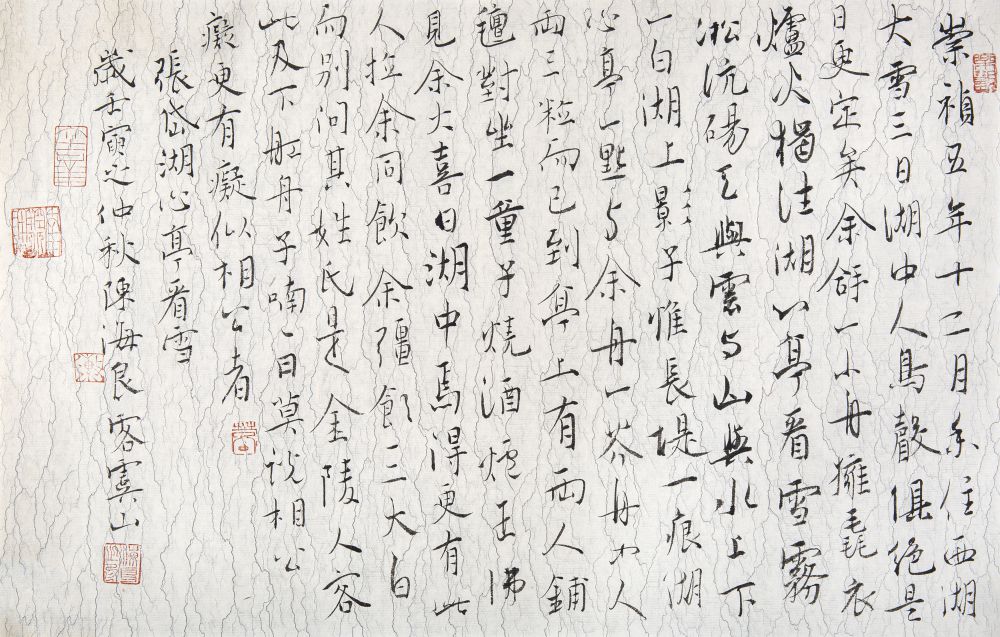 崇禎五年十二月余住西湖
大雪三日湖中人鳥聲俱絕是
日更定矣余舒一小舟擁毳衣
爐火獨往湖心亭看雪霧
淞沆碭天與雲与山與水上下
一白湖上影子惟長堤一痕湖
心亭一點与余舟一芥舟中人
兩三粒而已到亭上有兩人鋪
氈對坐一童子燒酒爐正沸
見余大喜曰湖中焉得更有此
人拉余同飲余彊飲三大白
而別問其姓氏是金陵人客
此及下舡舟子喃々曰莫說相公
癡更有癡似相公者
張岱湖心亭看雪
歲壬寅之仲秋陳海良客虞山